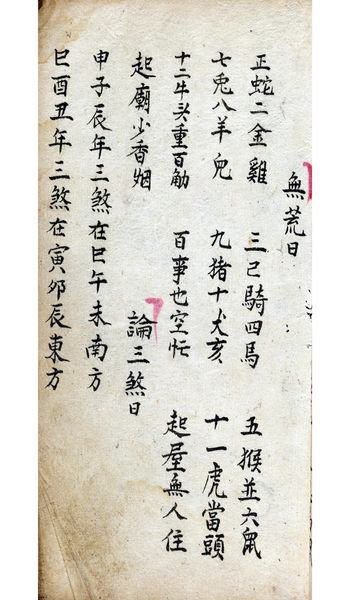 無荒日
正蛇二金雞 三己騎四馬 五猴並六鼠
七兎八羊兜 九猪十犬亥 十一虎當頭
十二牛头重百觔 百事也空忙 起屋無人住
起廟少香烟
論三煞日
申子辰年三煞在巳午未南方
巳酉丑年三煞在寅夘辰東方